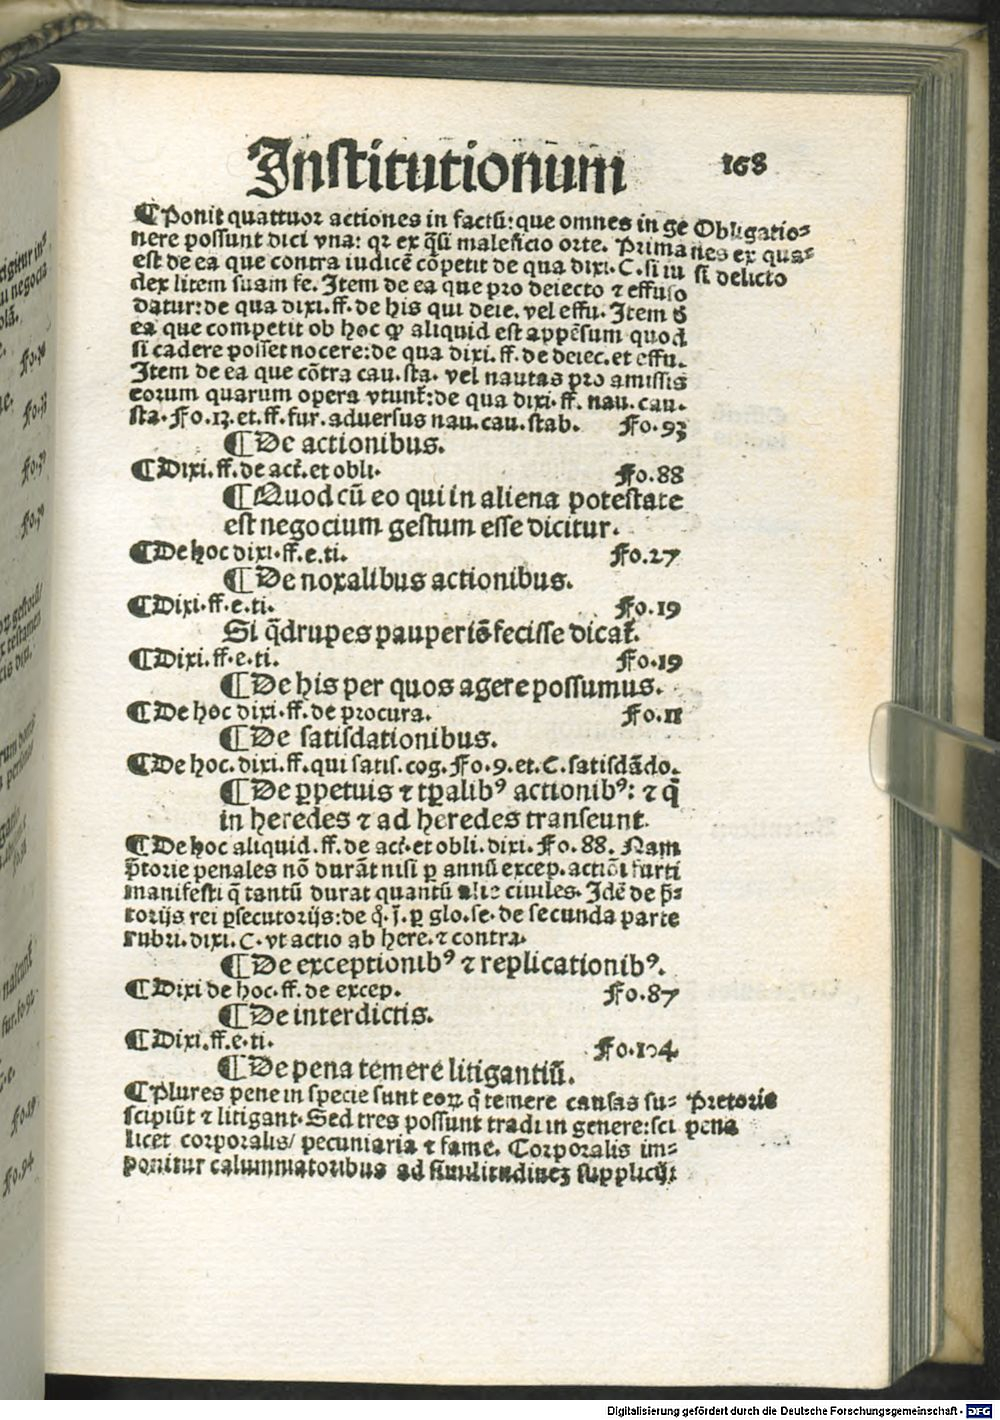 Institutionum 168
¶Ponit quattuor actiones in factũ: que omnes in ge
nere possunt dici vna: qꝛ ex q̃si maleficio orte. Prima
est de ea que contra iudicẽ cõpetit de qua dixi. C. si iu
dex litem suam fe. Item de ea que pro deiecto ⁊ effuso
datur: de qua dixi. ff. de his qui deie. vel effu. Item đ
ea que competit ob hoc ꝙ aliquid est appẽsum quod
si cadere posset nocere: de qua dixi. ff. de deiec. et effu.
Item de ea que cõtra cau. sta. vel nautas pro amissis
eorum quarum opera vtunt᷑: de qua dixi. ff. nau. cau.
sta. Fo. 13. et. ff. fur. aduersus nau. cau. stab. Fo. 93
Obligatio⸗
nes ex qua⸗
si delicto
¶De actionibus.
¶Dixi. ff. de act. et obli. Fo. 88
¶Quod cũ eo qui in aliena potestate
est negocium gestum esse dicitur.
¶De hoc dixi. ff. e. ti. Fo. 27
¶De noxalibus actionibus.
¶Dixi. ff. e. ti. Fo. 19
Si q̃drupes pauperiẽ fecisse dicat᷑.
¶Dixi. ff. e. ti. Fo. 19
¶De his per quos agere possumus.
¶De hoc dixi. ff. de procura. Fo. 11
¶De satisdationibus.
¶De hoc. dixi. ff. qui satis. cog. Fo. 9. et. C. satisdãdo.
¶De ꝑpetuis ⁊ tꝑalibꝰ actionibꝰ: ⁊ q̃
in heredes ⁊ ad heredes transeunt.
¶De hoc aliquid. ff. de act. et obli. dixi. Fo. 88. Nam
p̃torie penales nõ durãt nisi ꝑ annũ excep. actiõi furti
manifesti q̃ tantũ durat quantũ alie ciuiles. Idẽ de p̃⸗
torijs rei ꝑsecutorijs: de q̃. j̃. ꝑ glo. se. de secunda parte
rubri. dixi. C. vt actio ab here. ⁊ contra.
¶De exceptionibꝰ ⁊ replicationibꝰ.
¶Dixi de hoc. ff. de excep. Fo. 87
¶De interdictis.
¶Dixi. ff. e. ti. Fo. 104
¶De pena temere litigantiũ.
¶Plures pene in specie sunt eoꝝ q̃ temere causas su⸗
scipiũt ⁊ litigant. Sed tres possunt tradi in genere: sci
licet corporalis/ pecuniaria ⁊ fame. Corporalis im⸗
ponitur calumniatoribus ad similitudineꝫ supplicij:
Pretorie
pena
Digitalisierung gefördert durch die Deutsche Forschungsgemeinschaft - DFG